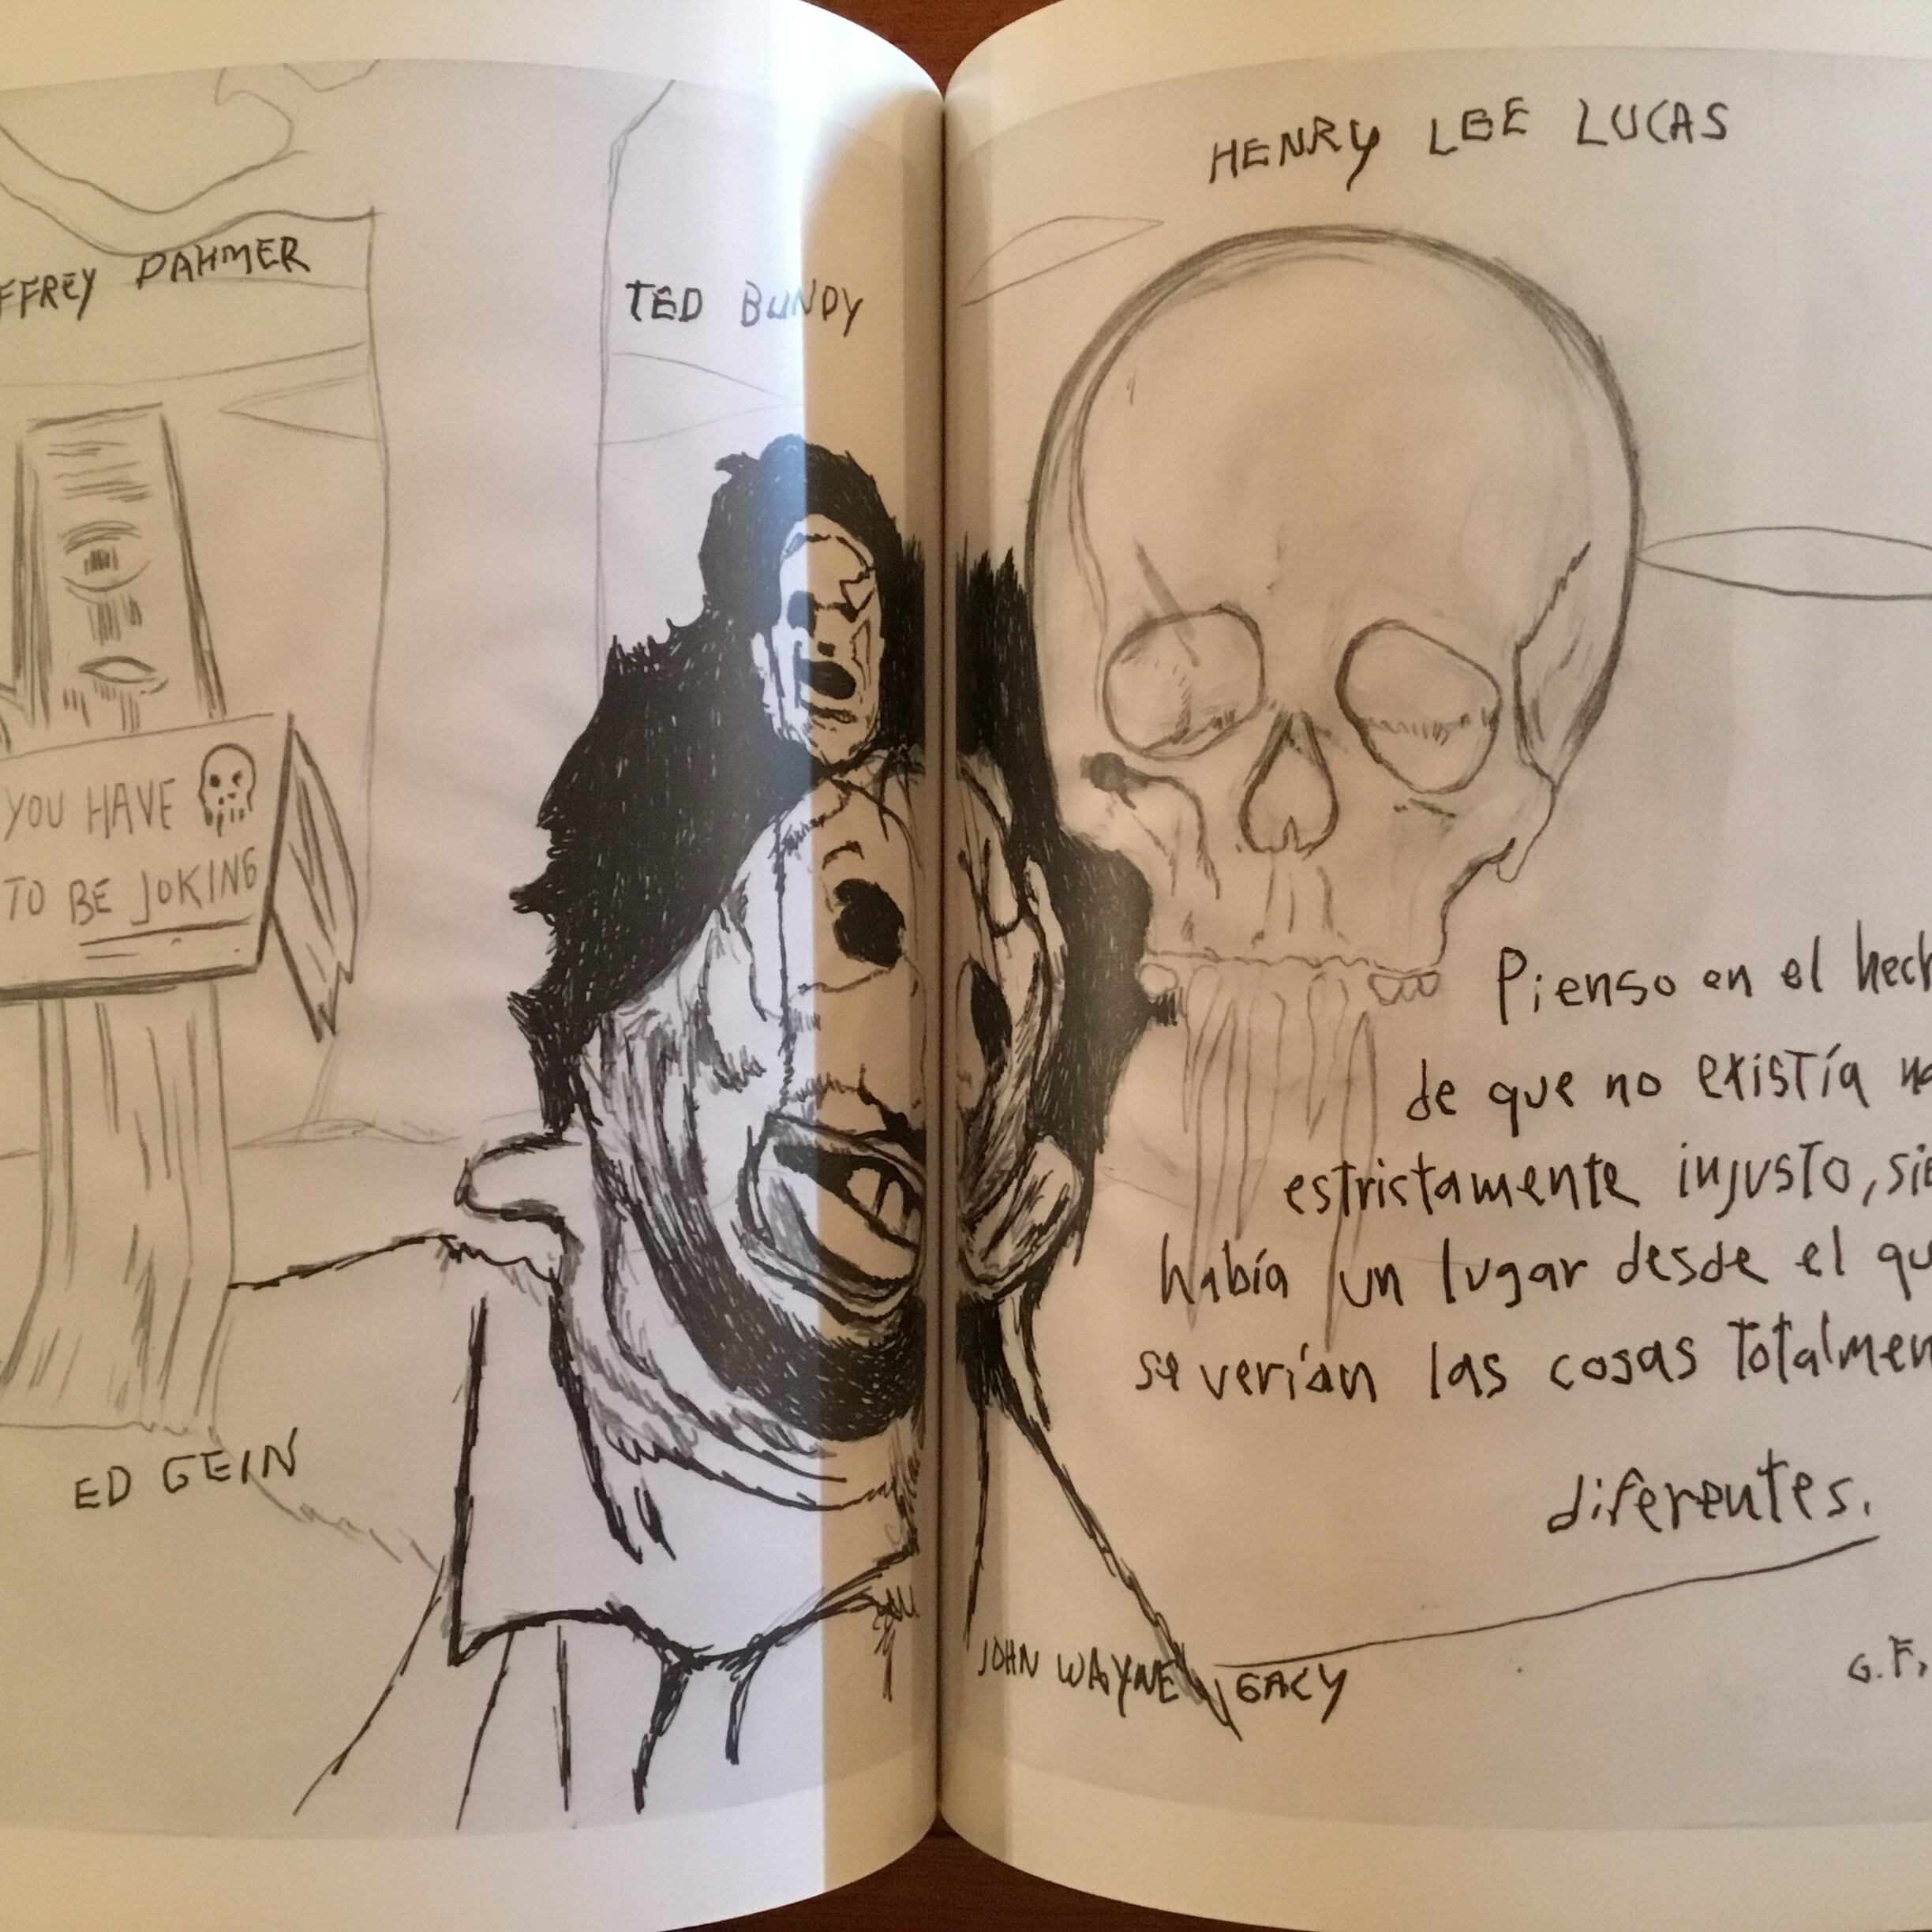 HENRY LEE LUCAS
FFREY DAHMER
TED BUNDY
YOU HAVE
TO BE JOKING
Pienso en el hech
de que no existía
estrictamente injusto, sie
había un lugar desde el qu
se verían las cosas totalmen
diferentes.
ED GEIN
JOHN WAYNE GACY
G.F.